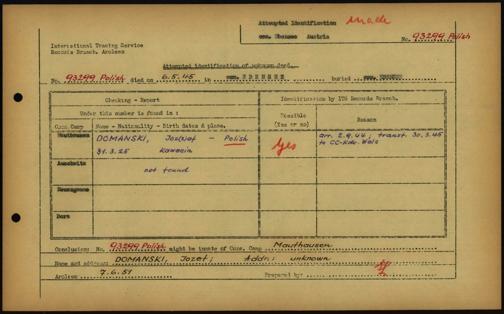 Attempted Identification made
com. Ebensee Austria
No. 93299 Polish
International Tracing Service
Records Branch, Arolsen
Attempted identification of unknown dead.
No. 93299 Polish died on 6.5.45 in com. EBENSEE buried com. EBENSEE
Checking - Report
Identification by ITS Records Branch.
Under this number is found in :
Possible
(Yes or no)
Reason
Conc. Camp Name - Nationality - Birth dates & place.
Mauthausen DOMANSKI, Joz(s)ef - Polish
31.3.25
Yes
to CC-Kdo. Wels
Auschwitz
not found
Buchenwald
Dora
Conclusion: No. 93299 Polish might be inmate of Conc. Camp Mauthausen
Name and address: DOMANSKI, Jozef; Addr.: unknown
Arolsen 7.6.51 Prepared by: